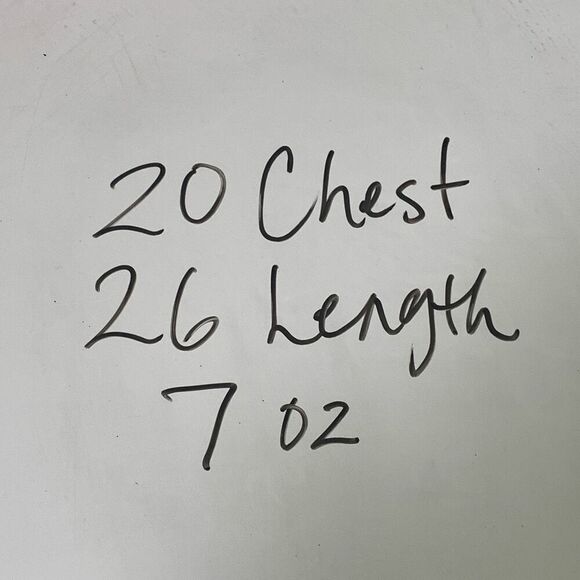 20 Chest
26 Length
7 oz